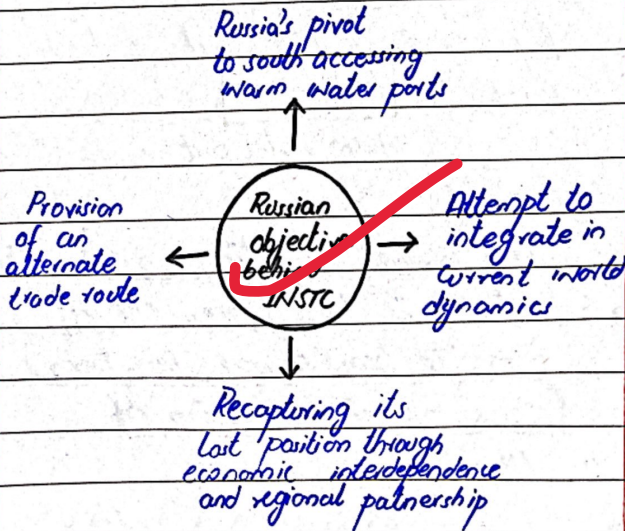 Russia's pivot
to south accessing
warm water ports
Provision
of an
alternate
trade route
Russian
objective
behind
INSTC
Attempt to
integrate in
current world
dynamics
Recapturing its
lost position through
economic interdependence
and regional patnership